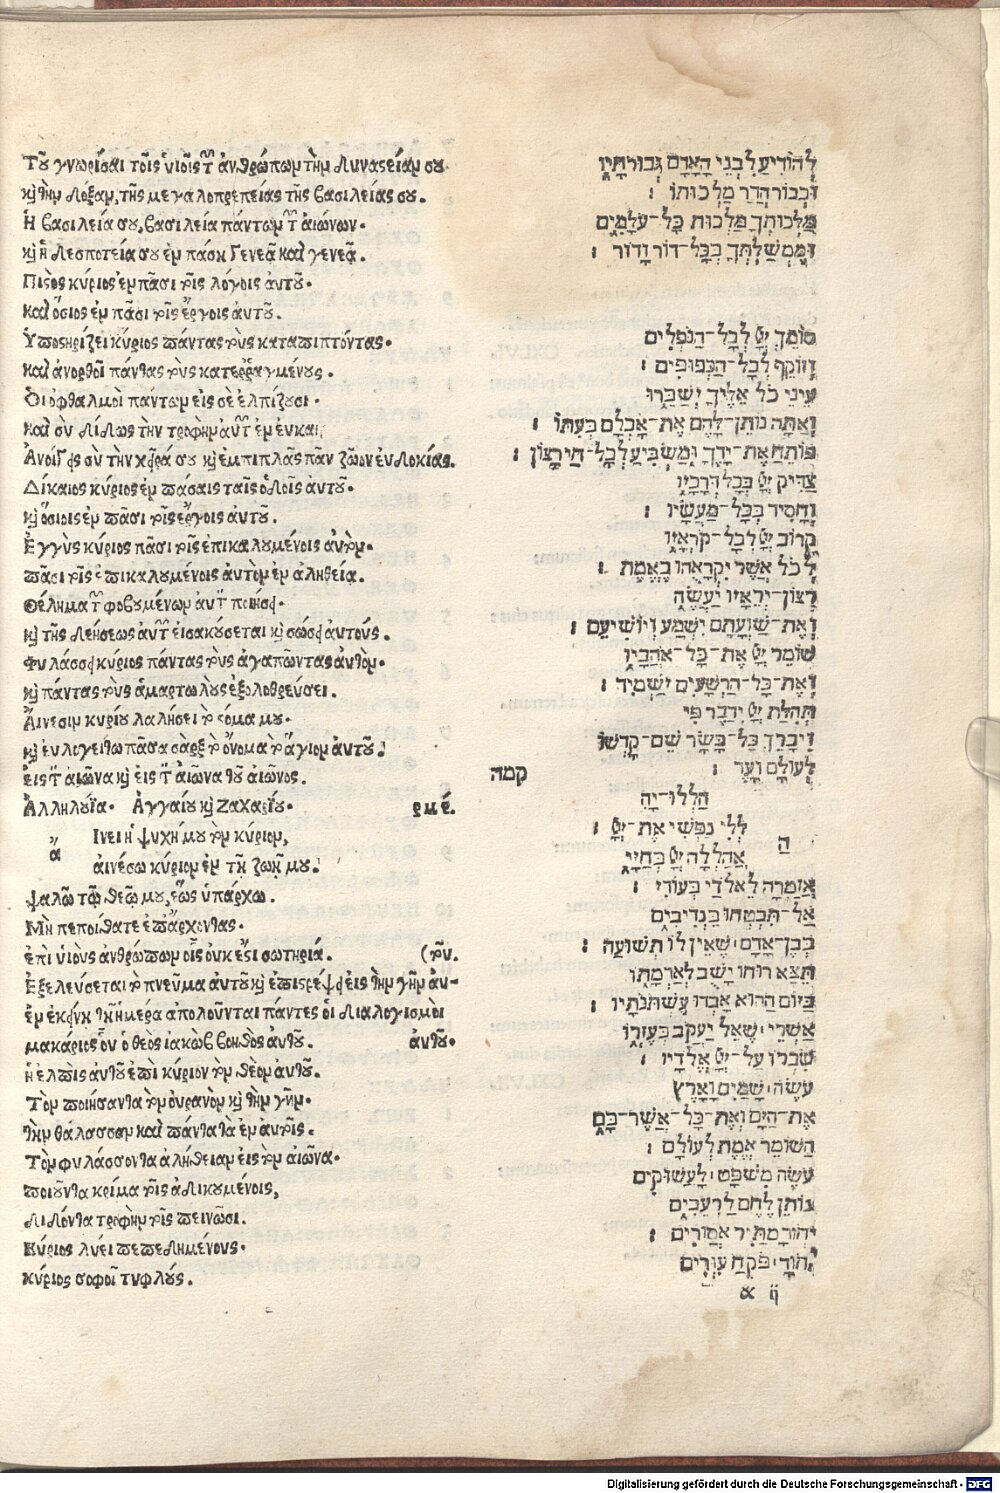 Τοῦ γνωρίσαι τοῖς ὑιοῖς τῶν ἀνθρώπων τὴν δυναστείαν σου.
καὶ τὴν δόξαν, τῆς μεγαλοπρεπείας τῆς βασιλείας σου.
Ἡ βασιλεία σου, βασιλεία πάντων τῶν αἰώνων.
καὶ ἡ δεσποτεία σου ἐν πάσῃ γενεᾷ καὶ γενεᾷ.
Πιστὸς κύριος ἐν πᾶσι τοῖς λόγοις αὐτοῦ.
καὶ ὅσιος ἐν πᾶσι τοῖς ἔργοις αὐτοῦ.
Ὑποστηρίζει κύριος πάντας τοὺς καταπιπτόντας.
καὶ ἀνορθοῖ πάντας τοὺς κατερῥαγμένους.
Ὁι ὀφθαλμοὶ πάντων εἰς σὲ ἐλπίζουσι.
καὶ σὺ δίδως τὴν τροφὴν αὐτῶν ἐν ἐυκαι
Ἀνοίγεις σὺ τὴν χεῖρά σου καὶ ἐμπιπλᾷς πᾶν ζῶον ἐυδοκίας.
Δίκαιος κύριος ἐν πάσαις ταῖς ὁδοῖς αὐτοῦ.
καὶ ὅσιος ἐν πᾶσι τοῖς ἔργοις αὐτοῦ.
Ἐγγὺς κύριος πᾶσι τοῖς ἐπικαλουμένοις αὐτὸν.
πᾶσι τοῖς ἐπικαλουμένοις αὐτὸν ἐν ἀληθεία.
Θέλημα τῶν φοβουμένων αὐτὸν ποιήσει.
καὶ τῆς δεήσεως αὐτῶν εἰσακούσεται καὶ σώσει αὐτούς.
Φυλάσσει κύριος πάντας τοὺς ἀγαπῶντας αὐτὸν.
καὶ πάντας τοὺς ἁμαρτωλοὺς ἐξολοθρεύσει.
Ἄινεσιν κυρίου λαλήσει τὸ στόμα μου.
καὶ ἐυλογείτω πᾶσα σὰρξ τὸ ὄνομα τὸ ἅγιον αὐτοῦ.
ἐις τὸν αἰῶνα καὶ ἐις τὸν αἰῶνα τοῦ αἰῶνος.
Ἀλληλούϊα. Ἀγγαίου καὶ Ζαχαρίου. ρμέ.
ἄ Ινει ἡ ψυχή μου τὸν κύριον,
ἀινέσω κύριον ἐν τῇ ζωῇ μου.
Ψαλῶ τῷ θεῷ μου, ἕως ὑπάρχω.
Μὴ πεποίθατε ἐπ' ἄρχοντας.
ἐπὶ υἱοὺς ἀνθρώπων οἷς οὐκ ἔστι σωτηρία. (τοῦ.
Ἐξελεύσεται τὸ πνεῦμα αὐτοῦ καὶ ἐπιστρέψει εἰς τὴν γῆν αὐ-
ἐν ἐκείνῃ τῇ ἡμέρα ἀπολοῦνται πάντες ὁι διαλογισμοὶ
μακάριος ὃν ὁ θεὸς ἰακὼβ βοηθὸς αὐτοῦ. ἀυτοῦ.
ἡ ἐλπὶς αὐτοῦ ἐπὶ κύριον τὸν θεὸν αὐτοῦ.
Τὸν ποιήσαντα τὸν οὐρανὸν καὶ τὴν γῆν.
τὴν θάλασσαν καὶ πάντα τὰ ἐν αὐτοῖς.
Τὸν φυλάσσοντα ἀλήθειαν εἰς τὸν αἰῶνα.
ποιοῦντα κρίμα τοῖς ἀδικουμένοις,
διδόντα τροφὴν τοῖς πεινῶσι.
Κύριος λύει πεπεδημένους.
κύριος σοφοῖ τυφλούς.
לְהוֹדִיעַ לִבְנֵי הָאָדָם גְּבוּרֹתָיו
וּכְבוֹד הֲדַר מַלְכוּתוֹ :
מַלְכוּתְךָ מַלְכוּת כָּל־עֹלָמִים
וּמֶמְשַׁלְתְּךָ בְּכָל־דּוֹר וָדוֹר :
סוֹמֵךְ יְיָ לְכָל־הַנֹּפְלִים
וְזוֹקֵף לְכָל־הַכְּפוּפִים :
עֵינֵי כֹל אֵלֶיךָ יְשַׂבֵּרוּ
וְאַתָּה נוֹתֵן־לָהֶם אֶת־אָכְלָם בְּעִתּוֹ :
פּוֹתֵחַ אֶת־יָדֶךָ וּמַשְׂבִּיעַ לְכָל־חַי רָצוֹן :
צַדִּיק יְיָ בְּכָל דְּרָכָיו
וְחָסִיד בְּכָל־מַעֲשָׂיו :
קָרוֹב יְיָ לְכָל־קֹרְאָיו
לְכֹל אֲשֶׁר יִקְרָאֻהוּ בֶאֱמֶת :
רְצוֹן־יְרֵאָיו יַעֲשֶׂה
וְאֶת־שַׁוְעָתָם יִשְׁמַע וְיוֹשִׁיעֵם :
שׁוֹמֵר יְיָ אֶת־כָּל־אֹהֲבָיו
וְאֶת־כָּל־הָרְשָׁעִים יַשְׁמִיד :
תְּהִלַּת יְיָ יְדַבֶּר פִּי
וִיבָרֵךְ כָּל־בָּשָׂר שֵׁם־קָדְשׁוֹ
לְעוֹלָם וָעֶד :
קמה
הַלְלוּ־יָהּ
הַ לְלִי נַפְשִׁי אֶת־יְיָ :
אֲהַלְלָה יְיָ בְּחַיָּי
אֲזַמְּרָה לֵאלֹדַי בְּעוֹדִי :
אַל־תִּבְטְחוּ בִנְדִיבִים
בְּבֶן־אָדָם שֶׁאֵין לוֹ תְשׁוּעָה :
תֵּצֵא רוּחוֹ יָשֻׁב לְאַדְמָתוֹ
בַּיּוֹם הַהוּא אָבְדוּ עֶשְׁתֹּנֹתָיו :
אַשְׁרֵי שֶׁאֵל יַעֲקֹב בְּעֶזְרוֹ
שִׂבְרוֹ עַל־יְיָ אֱלֹדָיו :
עֹשֶׂה שָׁמַיִם וָאָרֶץ
אֶת־הַיָּם וְאֶת־כָּל־אֲשֶׁר־בָּם
הַשּׁוֹמֵר אֱמֶת לְעוֹלָם :
עֹשֶׂה מִשְׁפָּט לָעֲשׁוּקִים
נוֹתֵן לֶחֶם לָרְעֵבִים
יְהוָד מַתִּיר אֲסוּרִים :
יְהוָד פֹּקֵחַ עִוְרִים
α ij
Digitalisierung gefördert durch die Deutsche Forschungsgemeinschaft - DFG